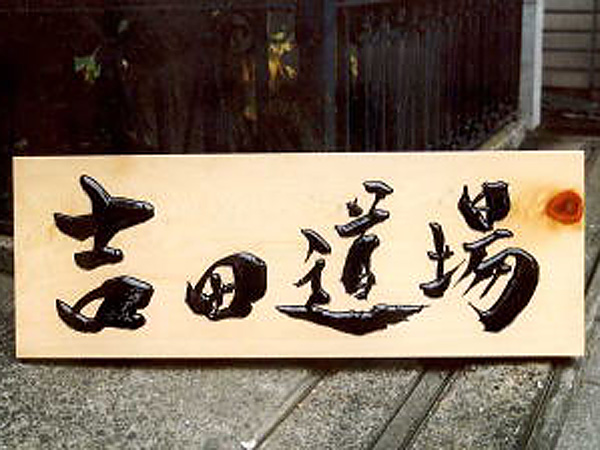 吉田道場